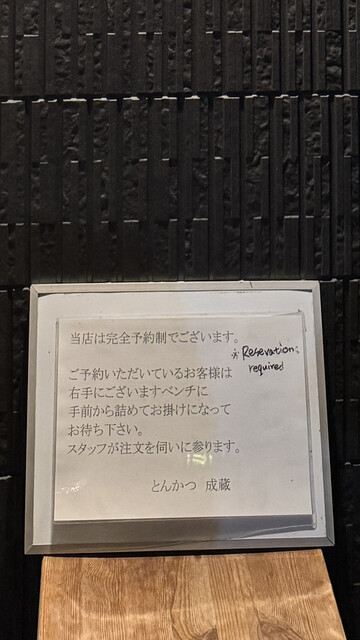 当店は完全予約制でございます。
※ Reservation
required
ご予約いただいているお客様は
右手にございますベンチに
手前から詰めてお掛けになって
お待ち下さい。
スタッフが注文を伺いに参ります。
とんかつ 成蔵